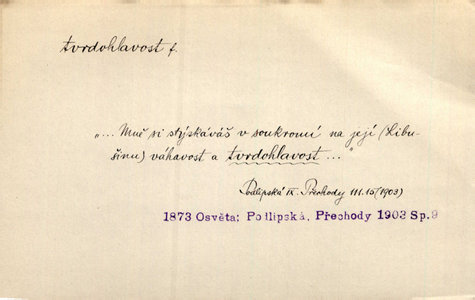 tvrdohlavost f.
„... Mně si stýskáváš v soukromí na její (Libu-
šinu) váhavost a tvrdohlavost ..."
Podlipská IX. Přechody III. 15 (1903)
1873 Osvěta; Podlipská, Přechody 1903 Sp.9